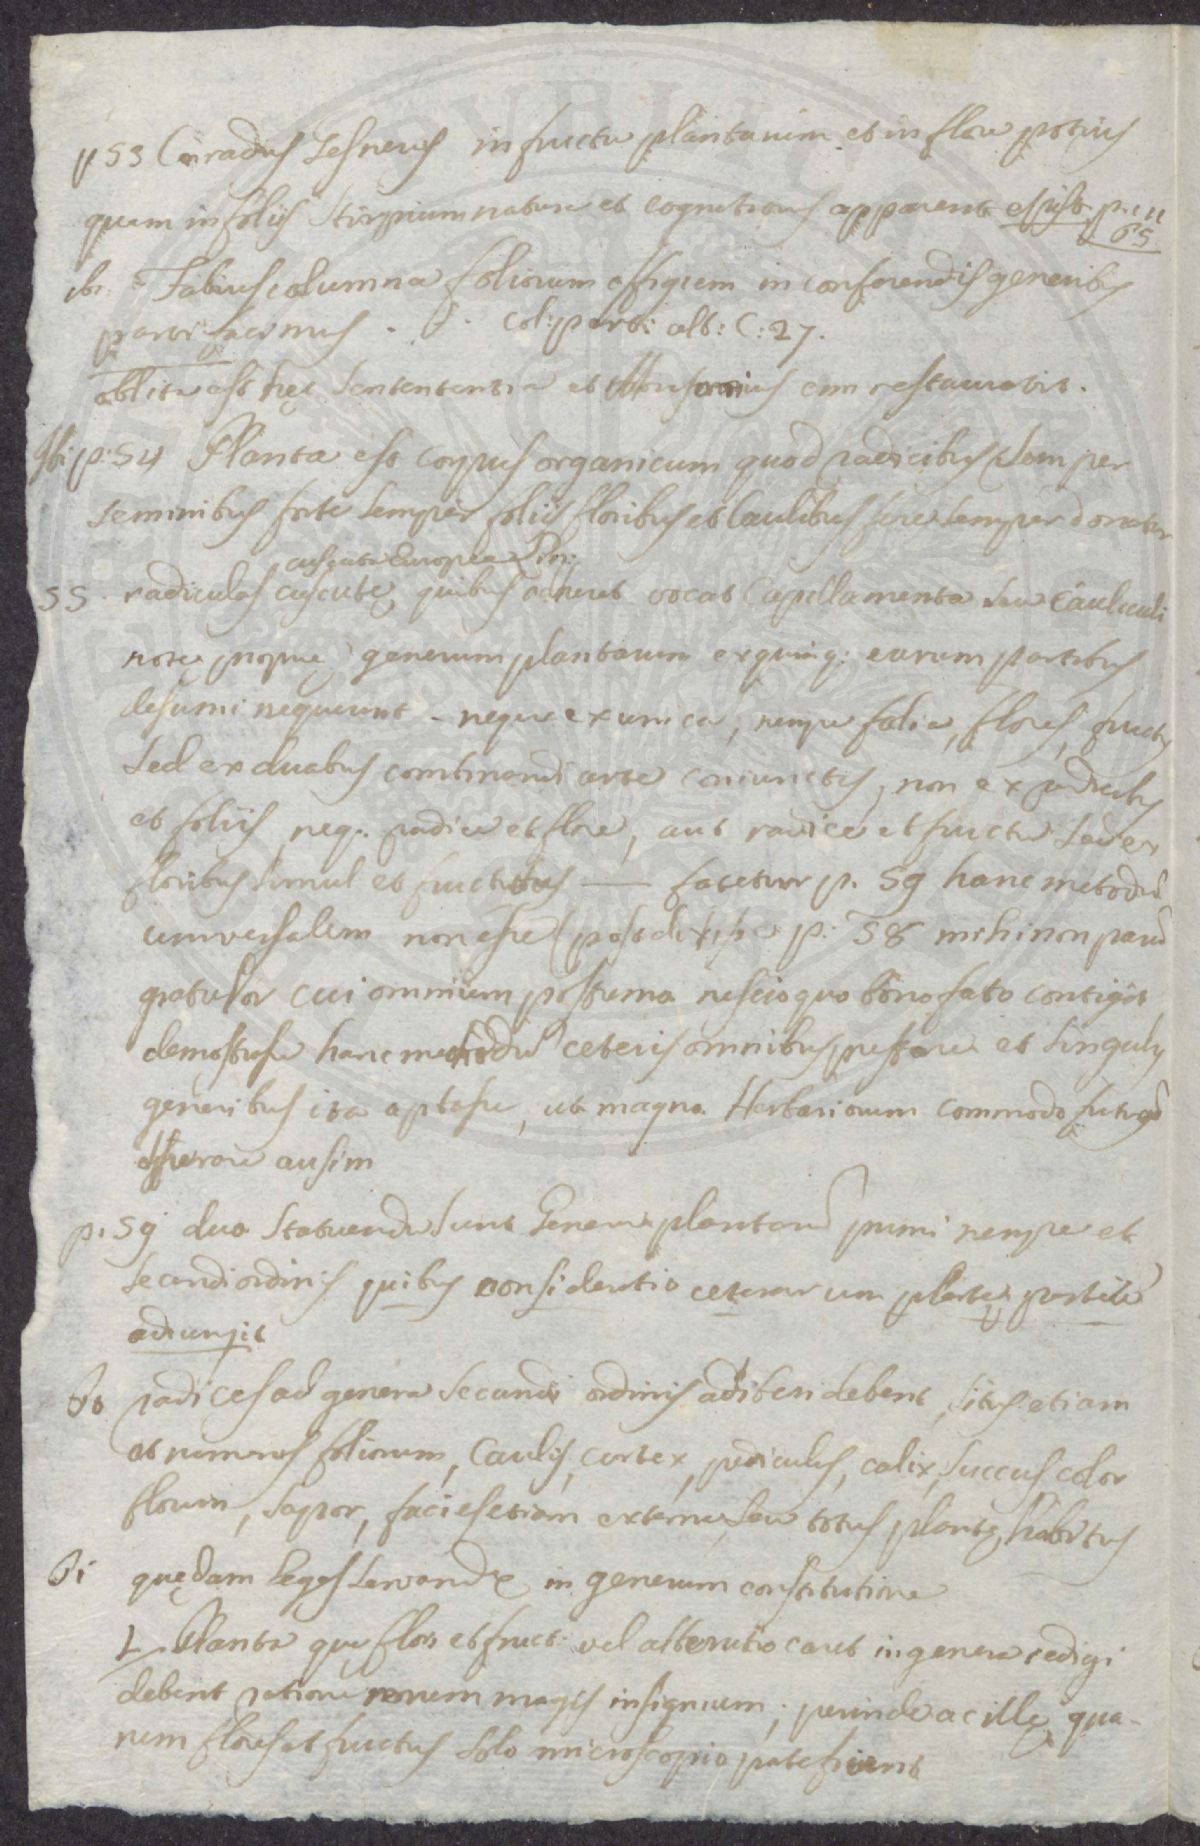 p 53 Conradus Gesnerus in fructu plantarum et in flore potius
quam in foliis stirpium natura et cognationes apparent epist. p. 11
65
ibi. Fabius columna foliorum effigiem in conferendis generibus
parvi facimus . Col: part: alt: C: 27.
oblita est hęc sentententia et eum restauravit.
Ibi p: 54 Planta est corpus organicum quod radicibus semper
seminibus forte semper foliis floribus et caulibus fere semper donatur
cuscuta Europea Lin:
55 radiculas cuscutę, quibus adheret vocat Capillamenta seu Cauliculi
notę proprię generum plantarum ex quinq: earum partibus
desumi nequeunt - neque ex unica, nempe folia, flores, fructus
sed ex duabus combinandi arte coniunctis, non ex radicibus
et foliis, neq: radice et flore, aut radice et fructu sed ex
floribus simul et fructibus — fatetur p. 59 hanc metodum
universalem non esse (post dixisse p: 58 mihi non parum
gratulor cui omnium postremo nescio quo bono fato contigit
demostrasse hanc methodum ceteris omnibus prestare et singulis
generibus ita aptasse, ut magno Herbariorum commodo futuram
sperare ausim
p. 59 duo statuenda sunt Genera plantarum primi nempe et
secundi ordinis quibus consideratio ceterarum plantę partium
adiungit
60 radices ad genera secundi ordinis adhiberi debent, situs etiam
et numerus foliorum, Caulis, cortex, pediculus, calix, succus color
florum, sapor, facies etiam externa, seu totus plantę habitus
61 quędam leges servandę in generum constitutione
1. Planta quę flore et fruct: vel alterutro caret in genera redigi
debent ratione rerum magis insignium; perinde ac illę, qua-
rum flores et fructus solo microscopio patefiunt